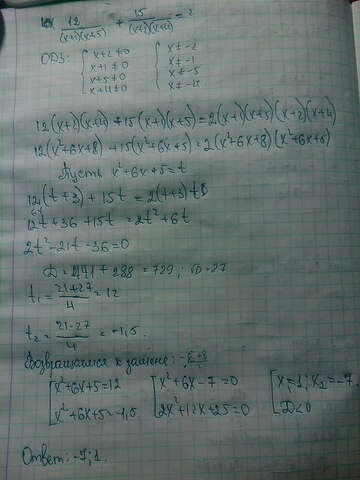 12/((x+1)(x+5)) + 15/((x+2)(x+4)) = 2
ОДЗ: { x+2≠0 { x≠-2
x+1≠0 x≠-1
x+5≠0 x≠-5
x+4≠0 x≠-4
12(x+2)(x+4)+15(x+1)(x+5)=2(x+1)(x+5)(x+2)(x+4)
12(x²+6x+8)+15(x²+6x+5)=2(x²+6x+8)(x²+6x+5)
Пусть x²+6x+5=t
12(t+3)+15t=2(t+3)t
12t+36+15t=2t²+6t
2t²-21t-36=0
D=441+288=729; √D=27
t₁=(21+27)/4=12
t₂=(21-27)/4=-1,5.
Возвращаемся к замене:
[ x²+6x+5=12 [ x²+6x-7=0 [ x₁=1; x₂=-7
x²+6x+5=-1,5 2x²+12x+25=0 D<0
Ответ: -7; 1.